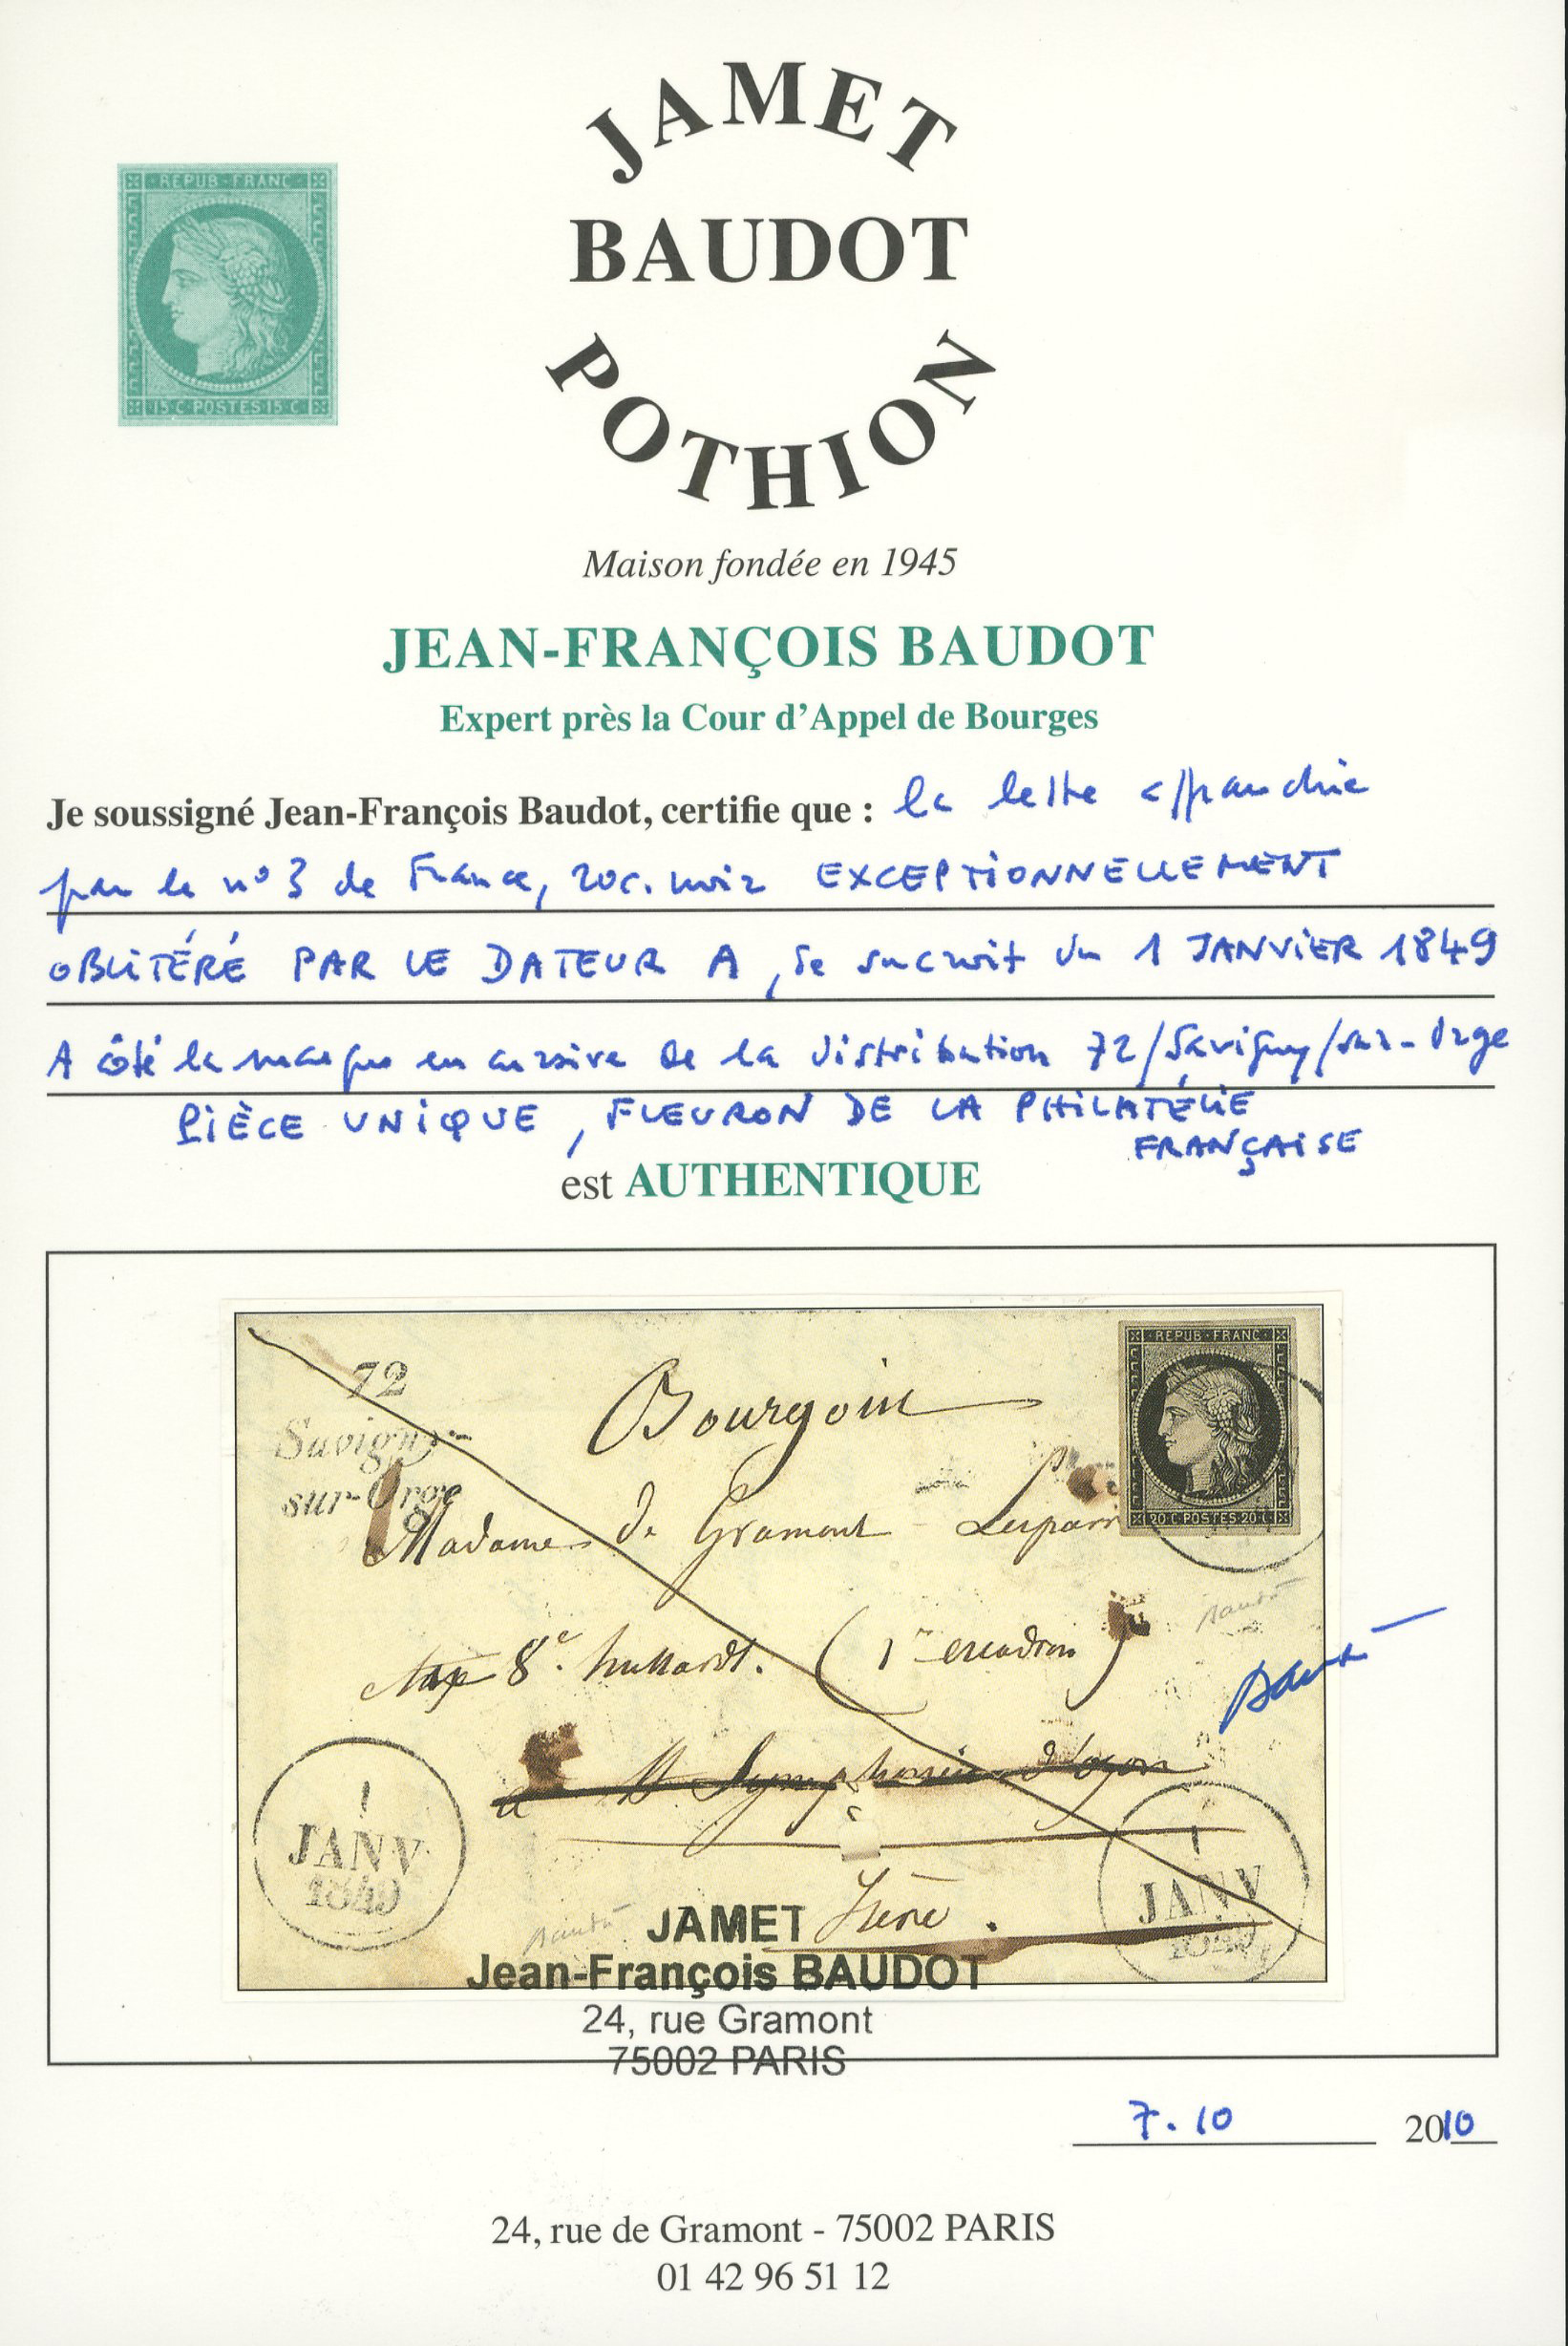 JAMET
BAUDOT
POTHION
REPUB·FRANC
15·C·POSTES·15·C
Maison fondée en 1945
JEAN-FRANÇOIS BAUDOT
Expert près la Cour d'Appel de Bourges
Je soussigné Jean-François Baudot, certifie que : la lettre affranchie
par le n° 3 de France, 20c. noir EXCEPTIONNELLEMENT
OBLITÉRÉ PAR LE DATEUR A, de surcroit du 1 JANVIER 1849
A côté la marque en cursive de la distribution 72/Savigny/sur-Orge
PIÈCE UNIQUE, FLEURON DE LA PHILATÉLIE
FRANÇAISE
est AUTHENTIQUE
72
Savigny-
sur-Orge
REPUB·FRANC
20·C·POSTES·20·C
Bourgoin
Madame de Gramont Lesparre
8e. hussards. (1er escadron)
a St Symphorien d'Ozon
Isère.
1
JANV
1849
1
JANV
1849
Baudot
Baudot
Baudot
JAMET
Jean-François BAUDOT
24, rue Gramont
75002 PARIS
7.10 2010
24, rue de Gramont - 75002 PARIS
01 42 96 51 12